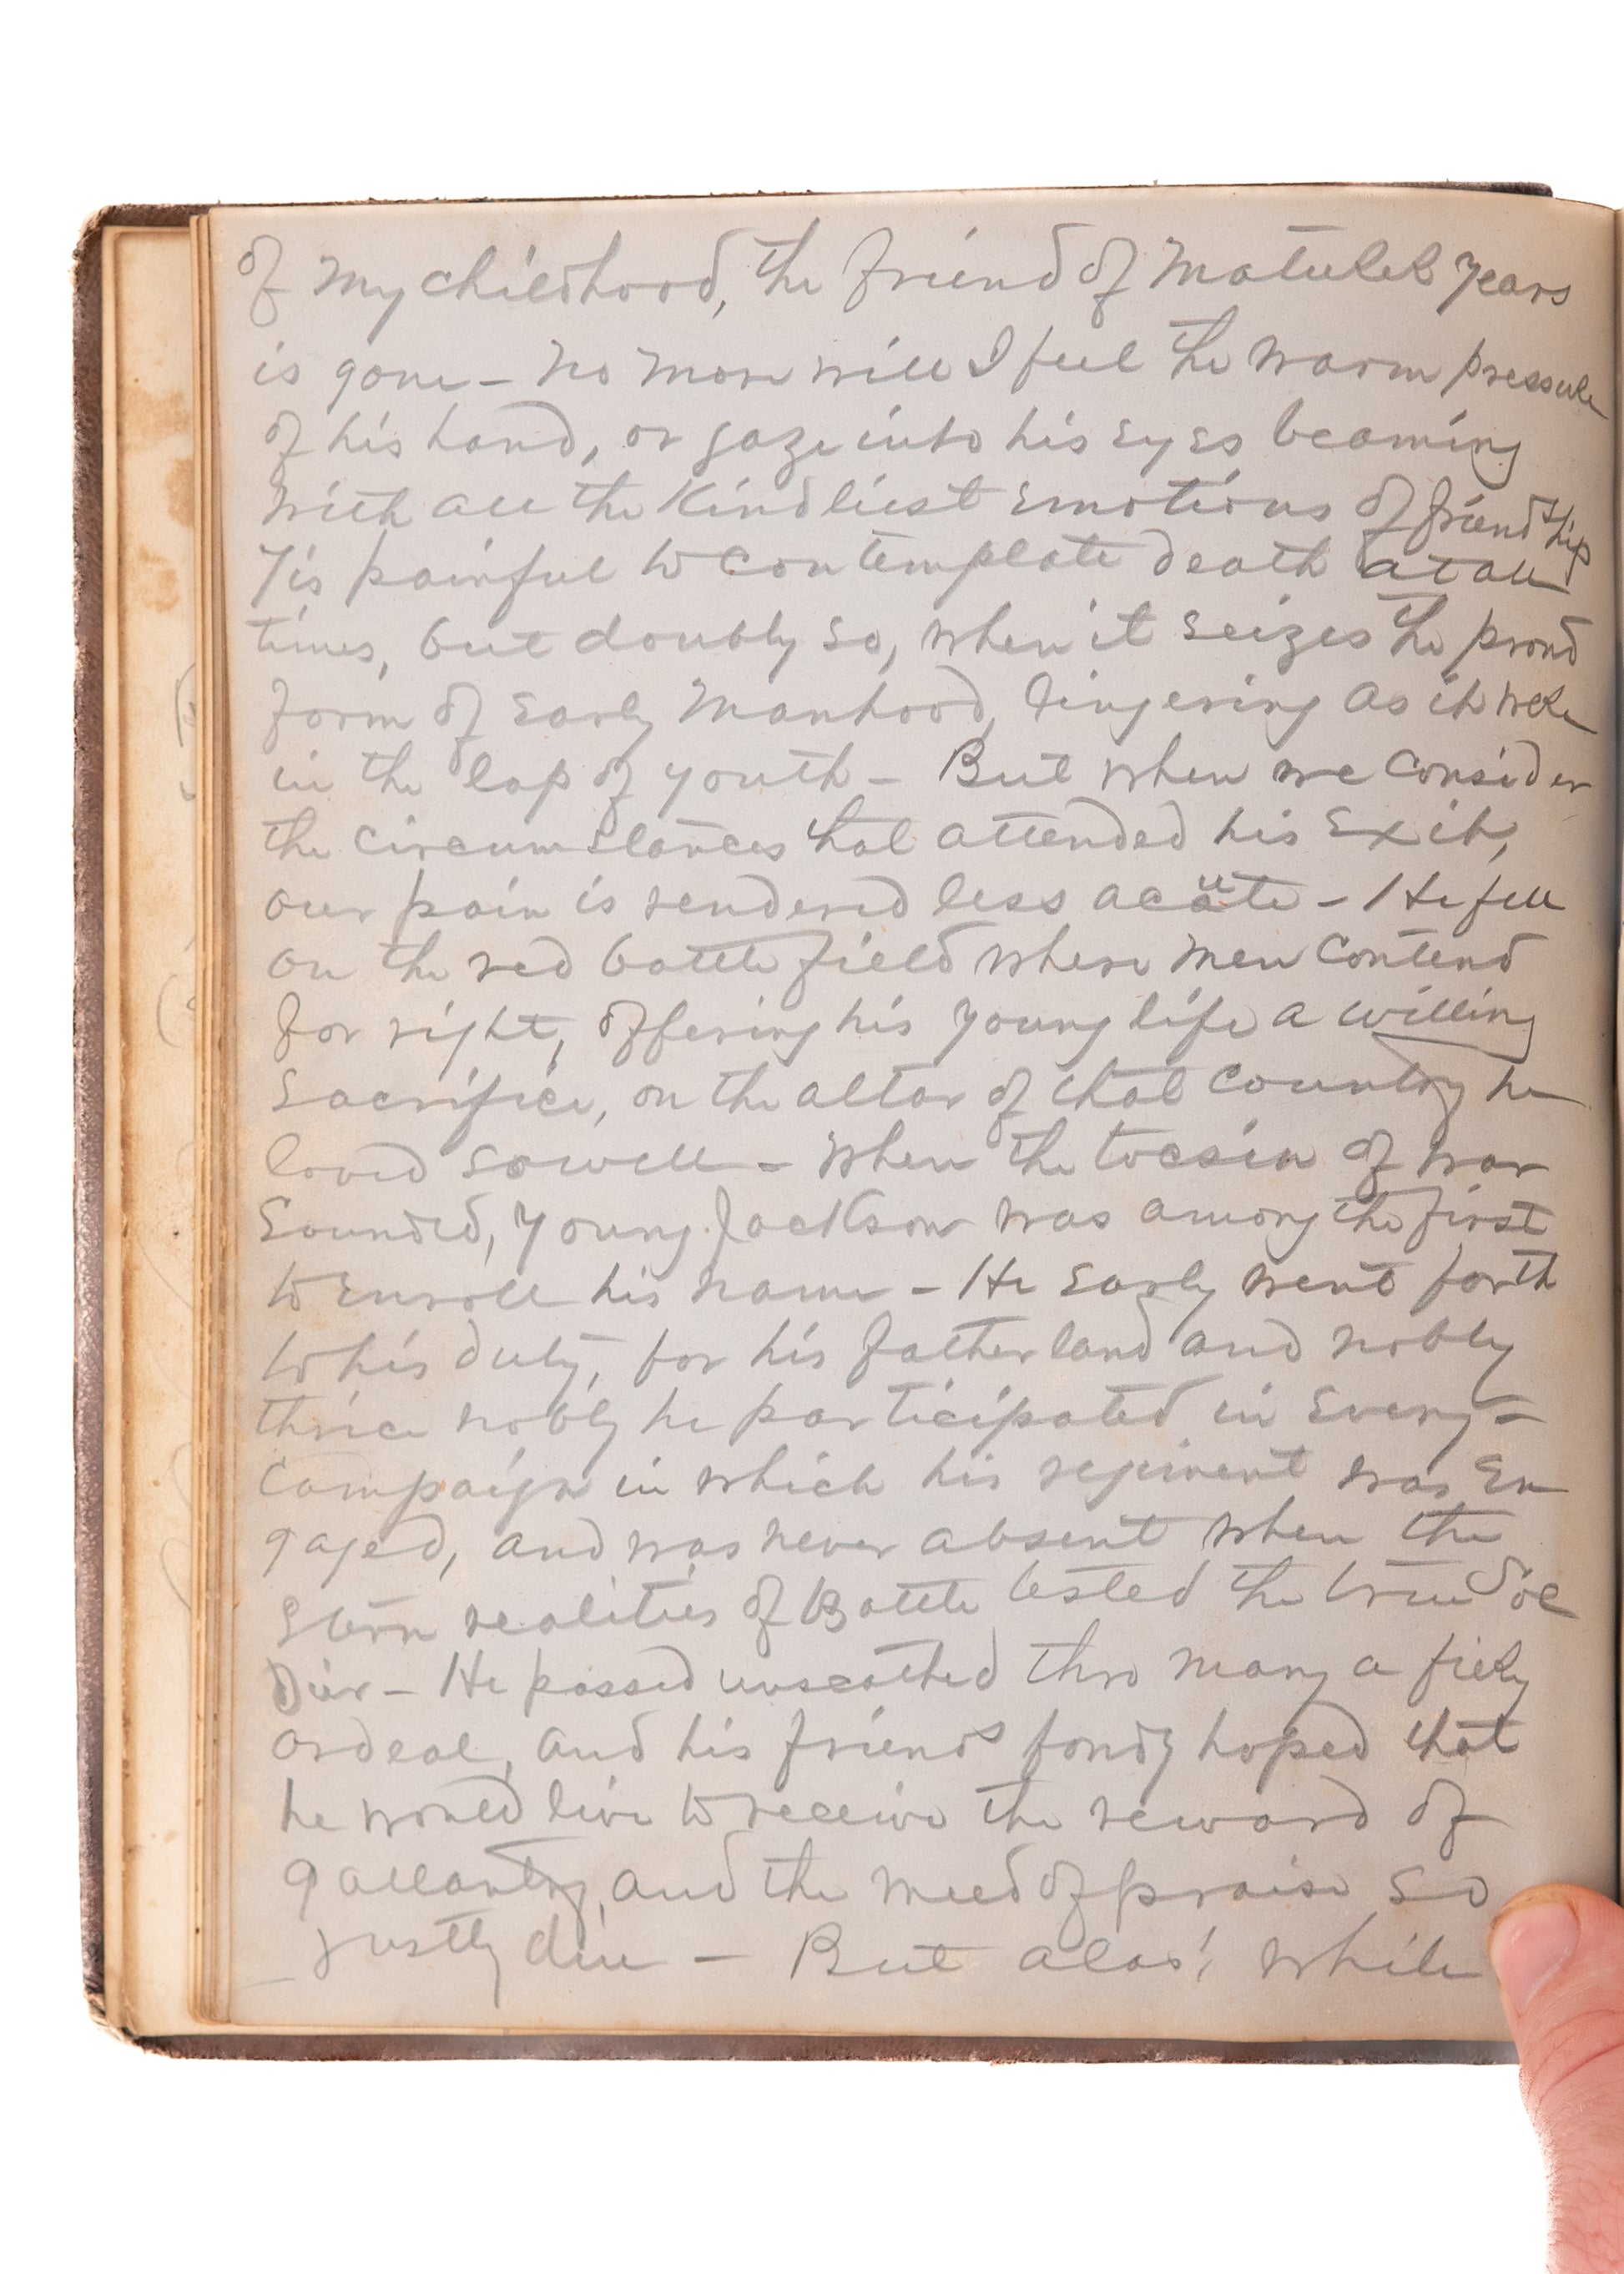 of my childhood, the friend of maturer years
is gone - no more will I feel the warm pressure
of his hand, or gaze into his eyes beaming
with all the kindliest emotions of friendship
Tis painful to contemplate death at all
times, but doubly so, when it seizes the proud
form of early manhood, lingering as it were
in the lap of youth - But when we consider
the circumstances that attended his exit,
our pain is rendered less acute - He fell
on the red battle field where men contend
for right, offering his young life a willing
sacrifice, on the altar of that country he
loved so well - When the tocsin of war
sounded, young Jackson was among the first
to enroll his name - He early went forth
to his duty, for his fatherland and nobly
thrice nobly he participated in every -
campaign in which his regiment was en
gaged, and was never absent when the
stern realities of Battle tested the true Sol
Dier - He passed unscathed thro many a fiery
ordeal, and his friends fondly hoped that
he would live to receive the reward of
gallantry, and the meed of praise so
justly due - But alas! while